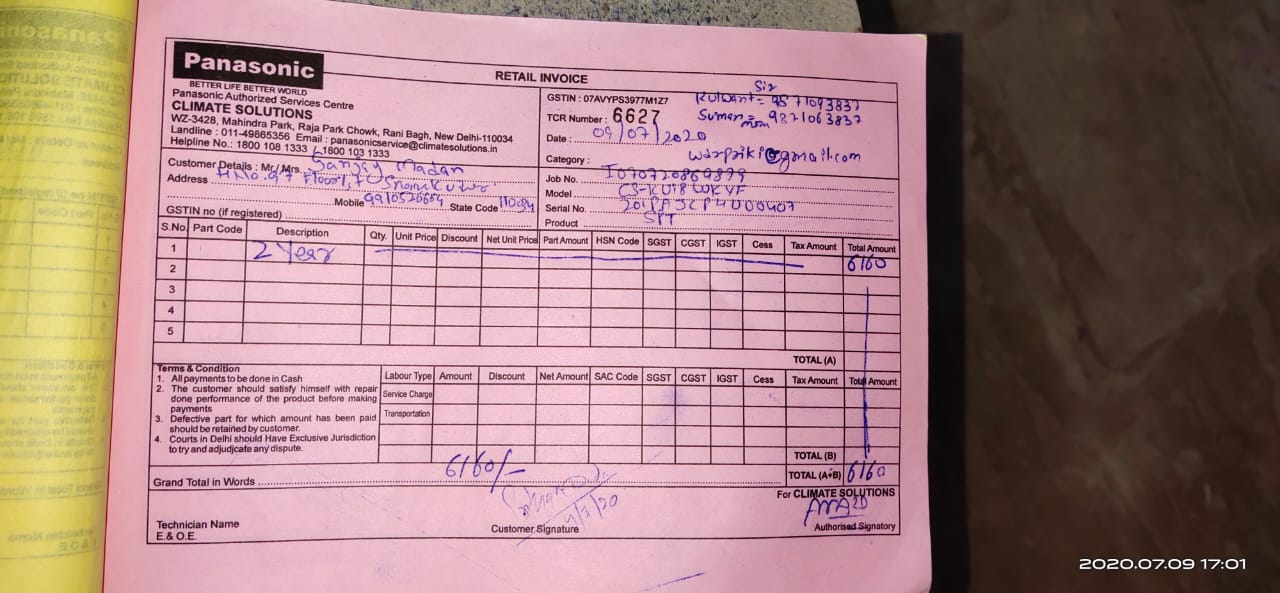 Panasonic
BETTER LIFE BETTER WORLD
Panasonic Authorized Services Centre
CLIMATE SOLUTIONS
WZ-3428, Mahindra Park, Raja Park Chowk, Rani Bagh, New Delhi-110034
Landline : 011-49865356 Email : panasonicservice@climatesolutions.in
Helpline No.: 1800 108 1333 / 1800 103 1333
RETAIL INVOICE
Sir
GSTIN : 07AVYPS3977M1Z7 Kulwant = 9571093837
TCR Number : 6627 Suman = 9871063837
Date : 09/07/2020
Category : @gmail.com
Customer Details : Mr./ Mrs. Sanjay Madan
Address H.No. 97 Floor
Mobile State Code 110034
GSTIN no (if registered)
Job No. I070720869899
Model CS-KU18WKYF
Serial No.
Product SPT
S.No. Part Code Description Qty. Unit Price Discount Net Unit Price Part Amount HSN Code SGST CGST IGST Cess Tax Amount Total Amount
1 2 Year 6160
2
3
4
5
TOTAL (A)
Terms & Condition
1. All payments to be done in Cash
2. The customer should satisfy himself with repair
done performance of the product before making
payments
3. Defective part for which amount has been paid
should be retained by customer.
4. Courts in Delhi should Have Exclusive Jurisdiction
to try and adjudjcate any dispute.
Labour Type Amount Discount Net Amount SAC Code SGST CGST IGST Cess Tax Amount Total Amount
Service Charge
Transportation
TOTAL (B)
Grand Total in Words 6160/- TOTAL (A+B) 6160
For CLIMATE SOLUTIONS
Technician Name
E.& O.E.
Customer Signature
Authorised Signatory
2020.07.09 17:01